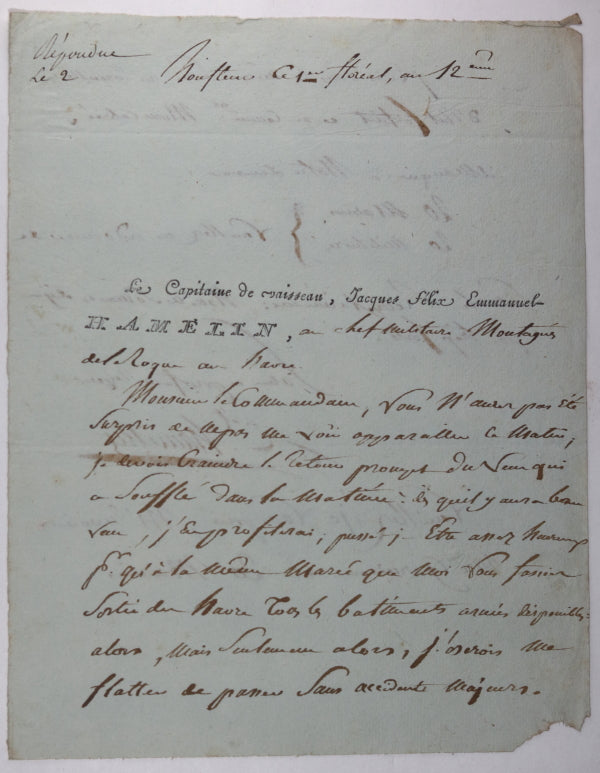 Répondue
Le 2
honfleur Ce 1er floréal, an 12eme
Le Capitaine de vaisseau, Jacques Félix Emmanuel
HAMELIN, au chef militaire Montagniés
de la Roque au havre.
Monsieur le Commandant, vous N'aurez pas été
Surpris de ne pas me voir apparailler ce Matin;
je devois Craindre le retour prompt du vent qui
a Soufflé dans la Matinée: dès qu'il y aura beau
tems, j'En profiterai; puissé-je Etre assez heureux
pr. qu'à la même Marée que Moi vous fassiez
Sortir du havre Tous les batiments armés disponibles:
alors, Mais Seulement alors, j'oserois me
flatter de passer Sans accidents Majeurs.